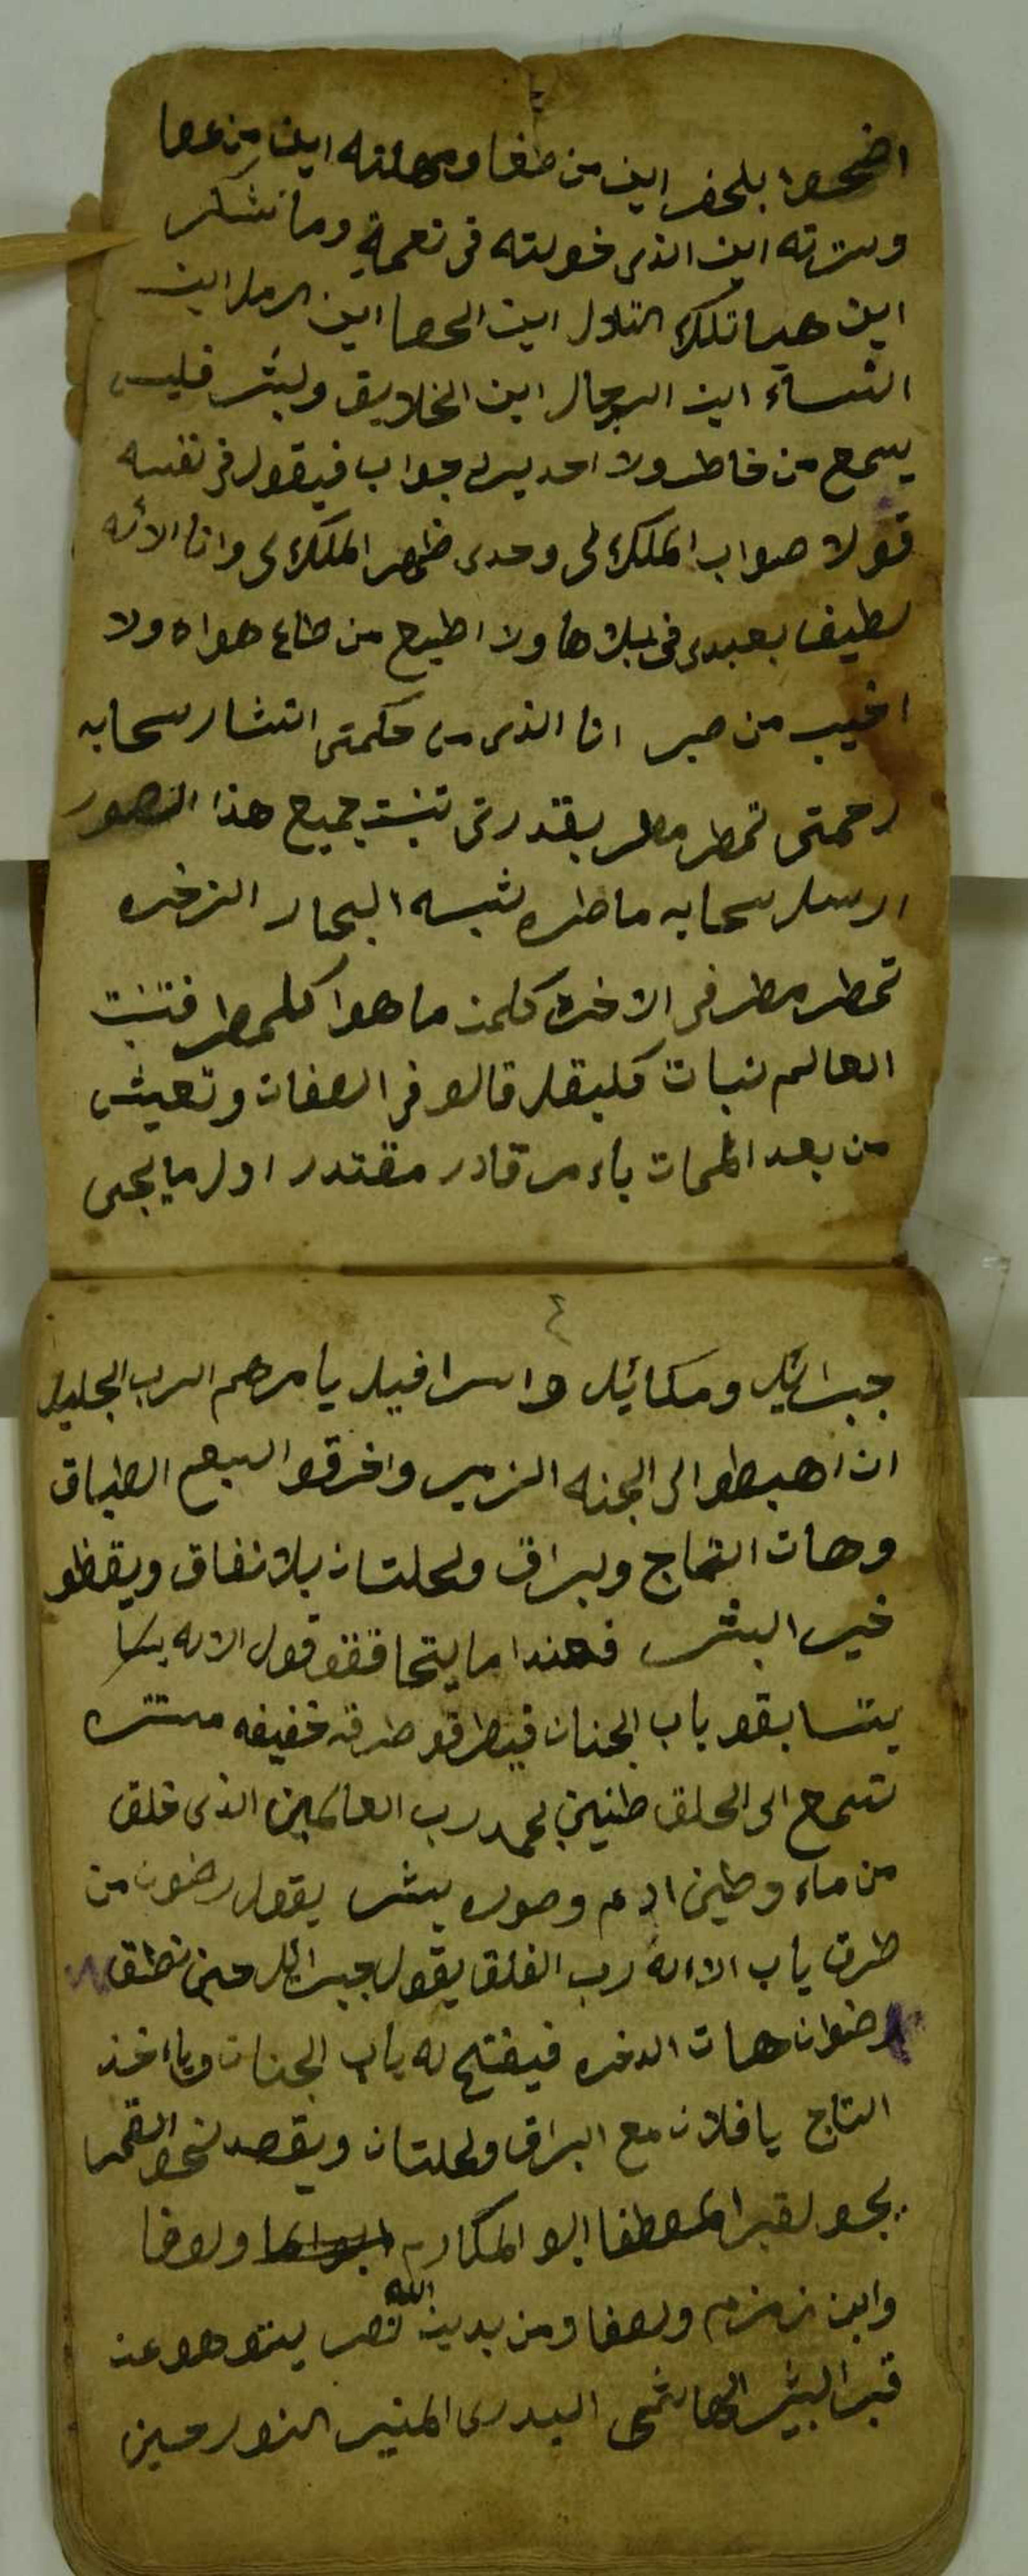 اضحوا بلحفر اين من طغا ومهلته اين من عصا
وسترته اين الذى خولته فى نعمة وما تشكر
اين هياتلك التلول اين الحصا اين الرمل اين
النساء اين الرجال اين الخلايق ولبشر فليس
يسمع من خاطر ولا احد يرد جواب فيقول فى نفسه
قولا صواب الملك لى وحدى ظهر الملك لى وانا الاله
لطيف بعبدى فى بلاها ولا اطيع من طاع هواه ولا
اخيب من صبر انا الذى من حكمتى انتشار سحابه
رحمتى تمطر مطر بقدرتى تنبت جميع هذا الصور
ارسل سحابه ماطره شبه البحار الزخره
تمطر مطر فى الاخره كلمن ما هوا كلمطر فتنبت
العالم نبات كلبقل قالو فى الصفات وتعيش
من بعد الممات باءمر قادر مقتدر اول ما يجى
٤
جبرائيل ومكائيل واسرافيل يامرهم الرب الجليل
ان اهبطو الى الجنه الزبر واخرقو السبع الطباق
وهات التاج ولبراق ولحلتان بلا نفاق ويقظو
خير البشر فعندا ما يتحاققو قول الاله
يتسابقو باب الجنان فيطرقو طرقه خفيفه مستتره
تسمع الى الحلق طنين لحمد رب العالمين الذى خلق
من ماء وطين ادم وصوره بشر يقول رضون من
طرق باب الاله رب الفلق يقول جبرائل حين نطق
رضوان هات الدخره فيفتح له باب الجنان وياءخذ
التاج يا فلان مع البراق ولحلتان ويقصد نحو القمر
يجو لقبر المصطفا ابو المكارم ولوفا
وابن زمزم ولصفا ومن بدين الله نصر يتوهو عن
قبر البشير الهاشمى البدرى المنير النور حين